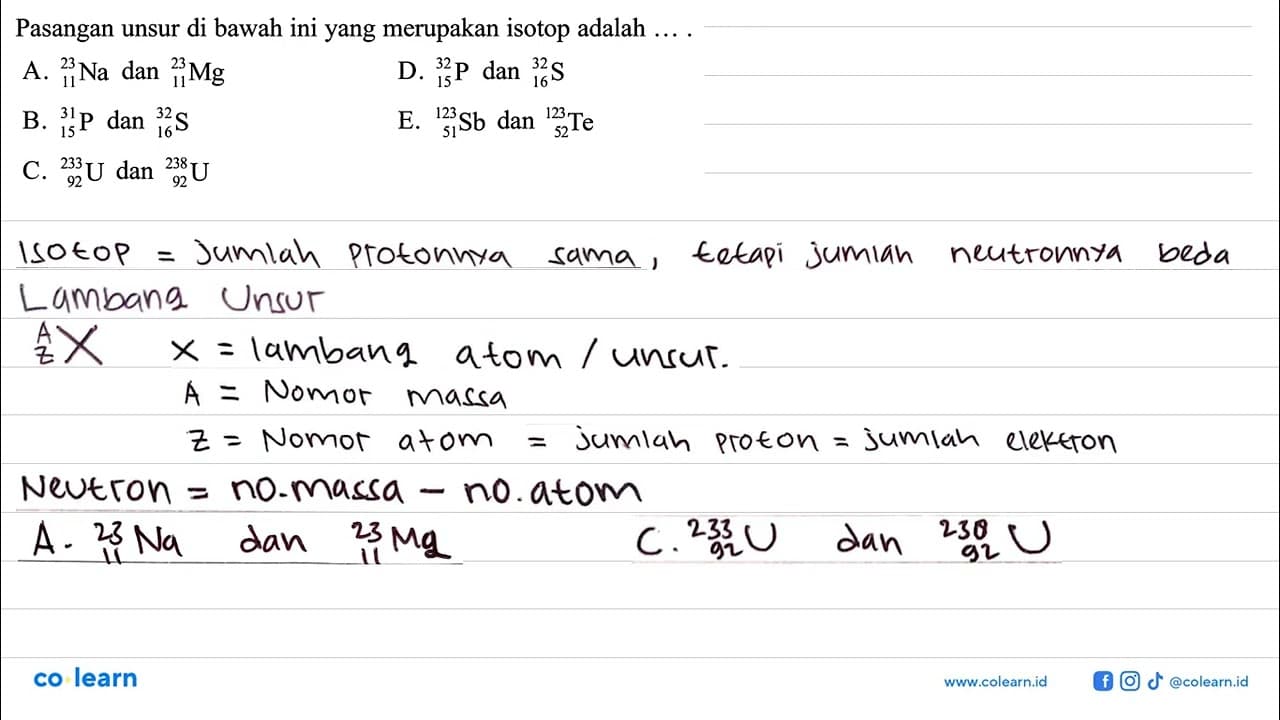 Pasangan unsur di bawah ini yang merupakan isotop adalah ... .
A. ²³₁₁Na dan ²³₁₁Mg
D. ³²₁₅P dan ³²₁₆S
B. ³¹₁₅P dan ³²₁₆S
E. ¹²³₅₁Sb dan ¹²³₅₂Te
C. ²³³₉₂U dan ²³⁸₉₂U
Isotop = jumlah protonnya sama, tetapi jumlah neutronnya beda
Lambang Unsur
ᴬ_Z X x = lambang atom / unsur.
A = Nomor massa
Z = Nomor atom = jumlah proton = jumlah elektron
Neutron = no.massa – no.atom
A. ²³₁₁Na dan ²³₁₁Mg C. ²³³₉₂U dan ²³⁸₉₂U
co learn
www.colearn.id
@colearn.id